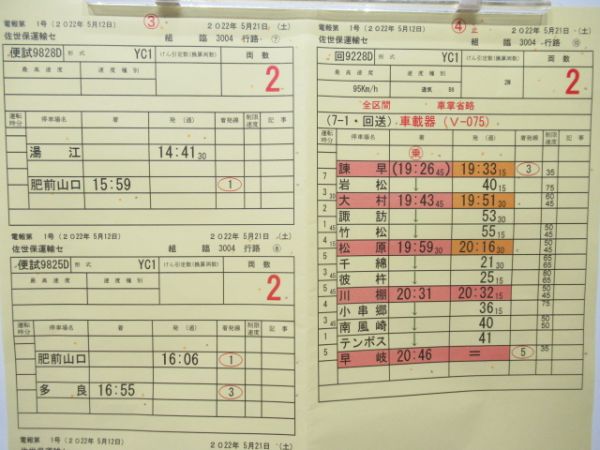 電報第 1号(2022年 5月12日) ③ 2022年 5月21日 (土)
佐世保運輸セ 組 臨 3004 行路 ⑦
便試9828D 形式 YC1 けん引定数(換算両数) 両数
最高速度 速度種別 2
運転時分 停車場名 着 発(通) 着発線 制限速度 記事
湯江 14:41 30
肥前山口 15:59 1
電報第 1号(2022年 5月12日) 2022年 5月21日 (土)
佐世保運輸セ 組 臨 3004 行路 ⑧
便試9825D 形式 YC1 けん引定数(換算両数) 両数
最高速度 速度種別 2
運転時分 停車場名 着 発(通) 着発線 制限速度 記事
肥前山口 16:06 1
多良 16:55 3
電報第 1号(2022年 5月12日) 2022年 5月21日 (土)
佐世保運輸セ
電報第 1号(2022年 5月12日) ④ 2022年 5月21日 (土)
佐世保運輸セ 組 臨 3004 行路
回9228D 形式 YC1 けん引定数(換算両数) 両数
最高速度 速度種別 2
95Km/h
全区間 車掌省略
(7-1・回送) 車載器 (V-075)
運転時分 停車場名 着 発(通) 着発線 制限速度 記事
乗
諫早 (19:26 45) 19:33 15 3 35
7 岩松 ↓ 40 15 75
大村 19:43 45 19:51 30
諏訪 ↓ 53 30
竹松 ↓ 55 15
松原 19:59 30 20:16 30
千綿 ↓ 21 30
彼杵 ↓ 25 15
川棚 20:31 20:32 15
小串郷 ↓ 36 15
南風崎 ↓ 40
テンボス ↓ 41
5 早岐 20:46 = 5 35